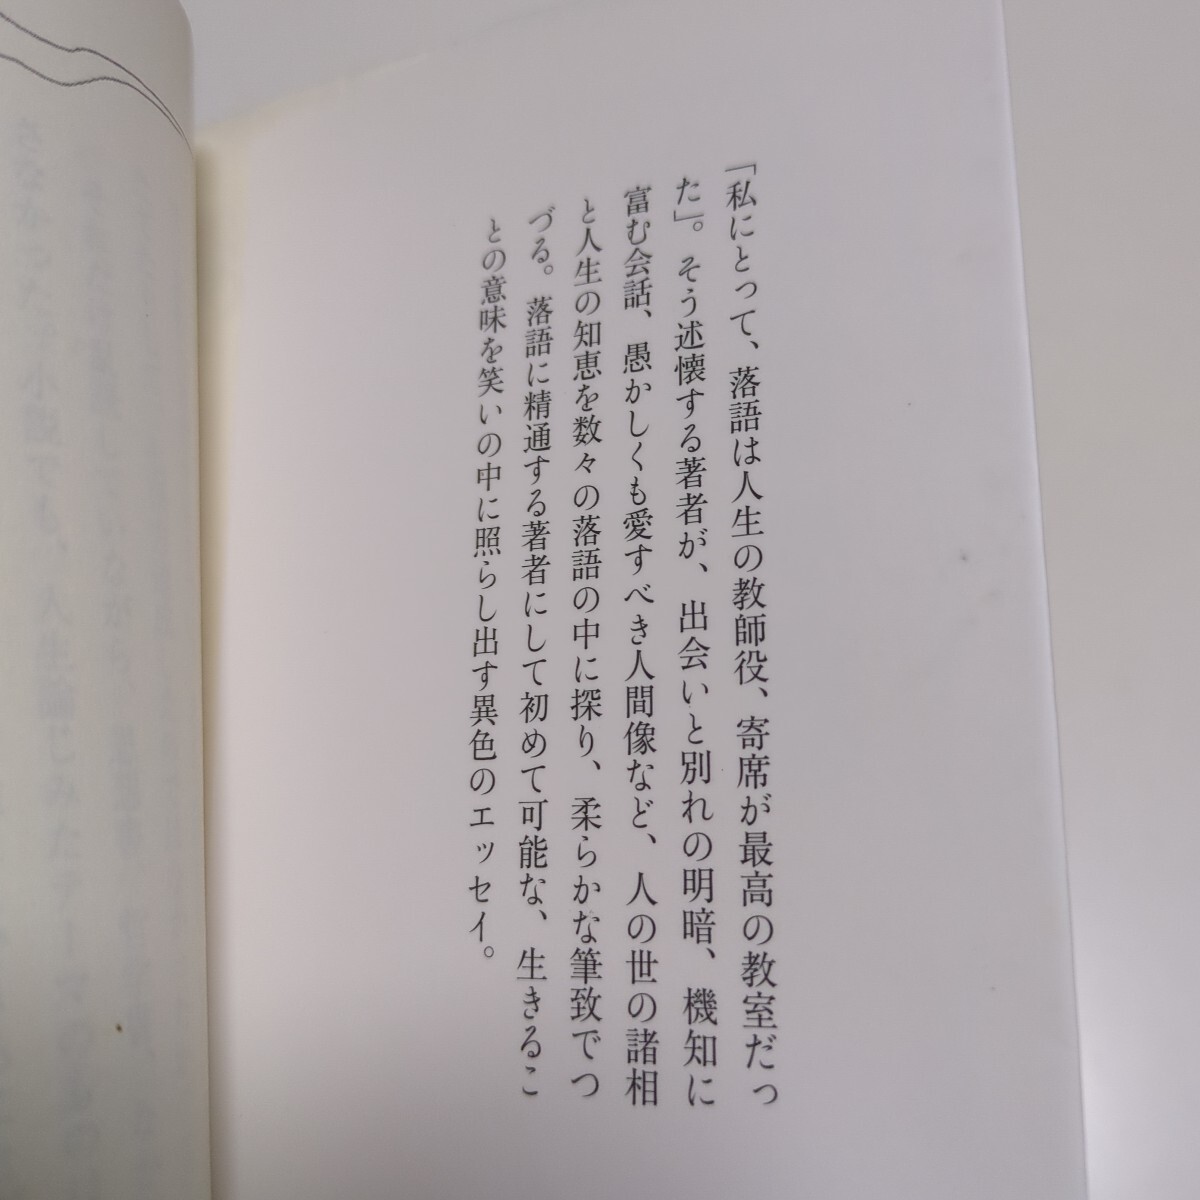 「私にとって、落語は人生の教師役、寄席が最高の教室だっ
た」。そう述懐する著者が、出会いと別れの明暗、機知に
富む会話、愚かしくも愛すべき人間像など、人の世の諸相
と人生の知恵を数々の落語の中に探り、柔らかな筆致でつ
づる。落語に精通する著者にして初めて可能な、生きるこ
との意味を笑いの中に照らし出す異色のエッセイ。